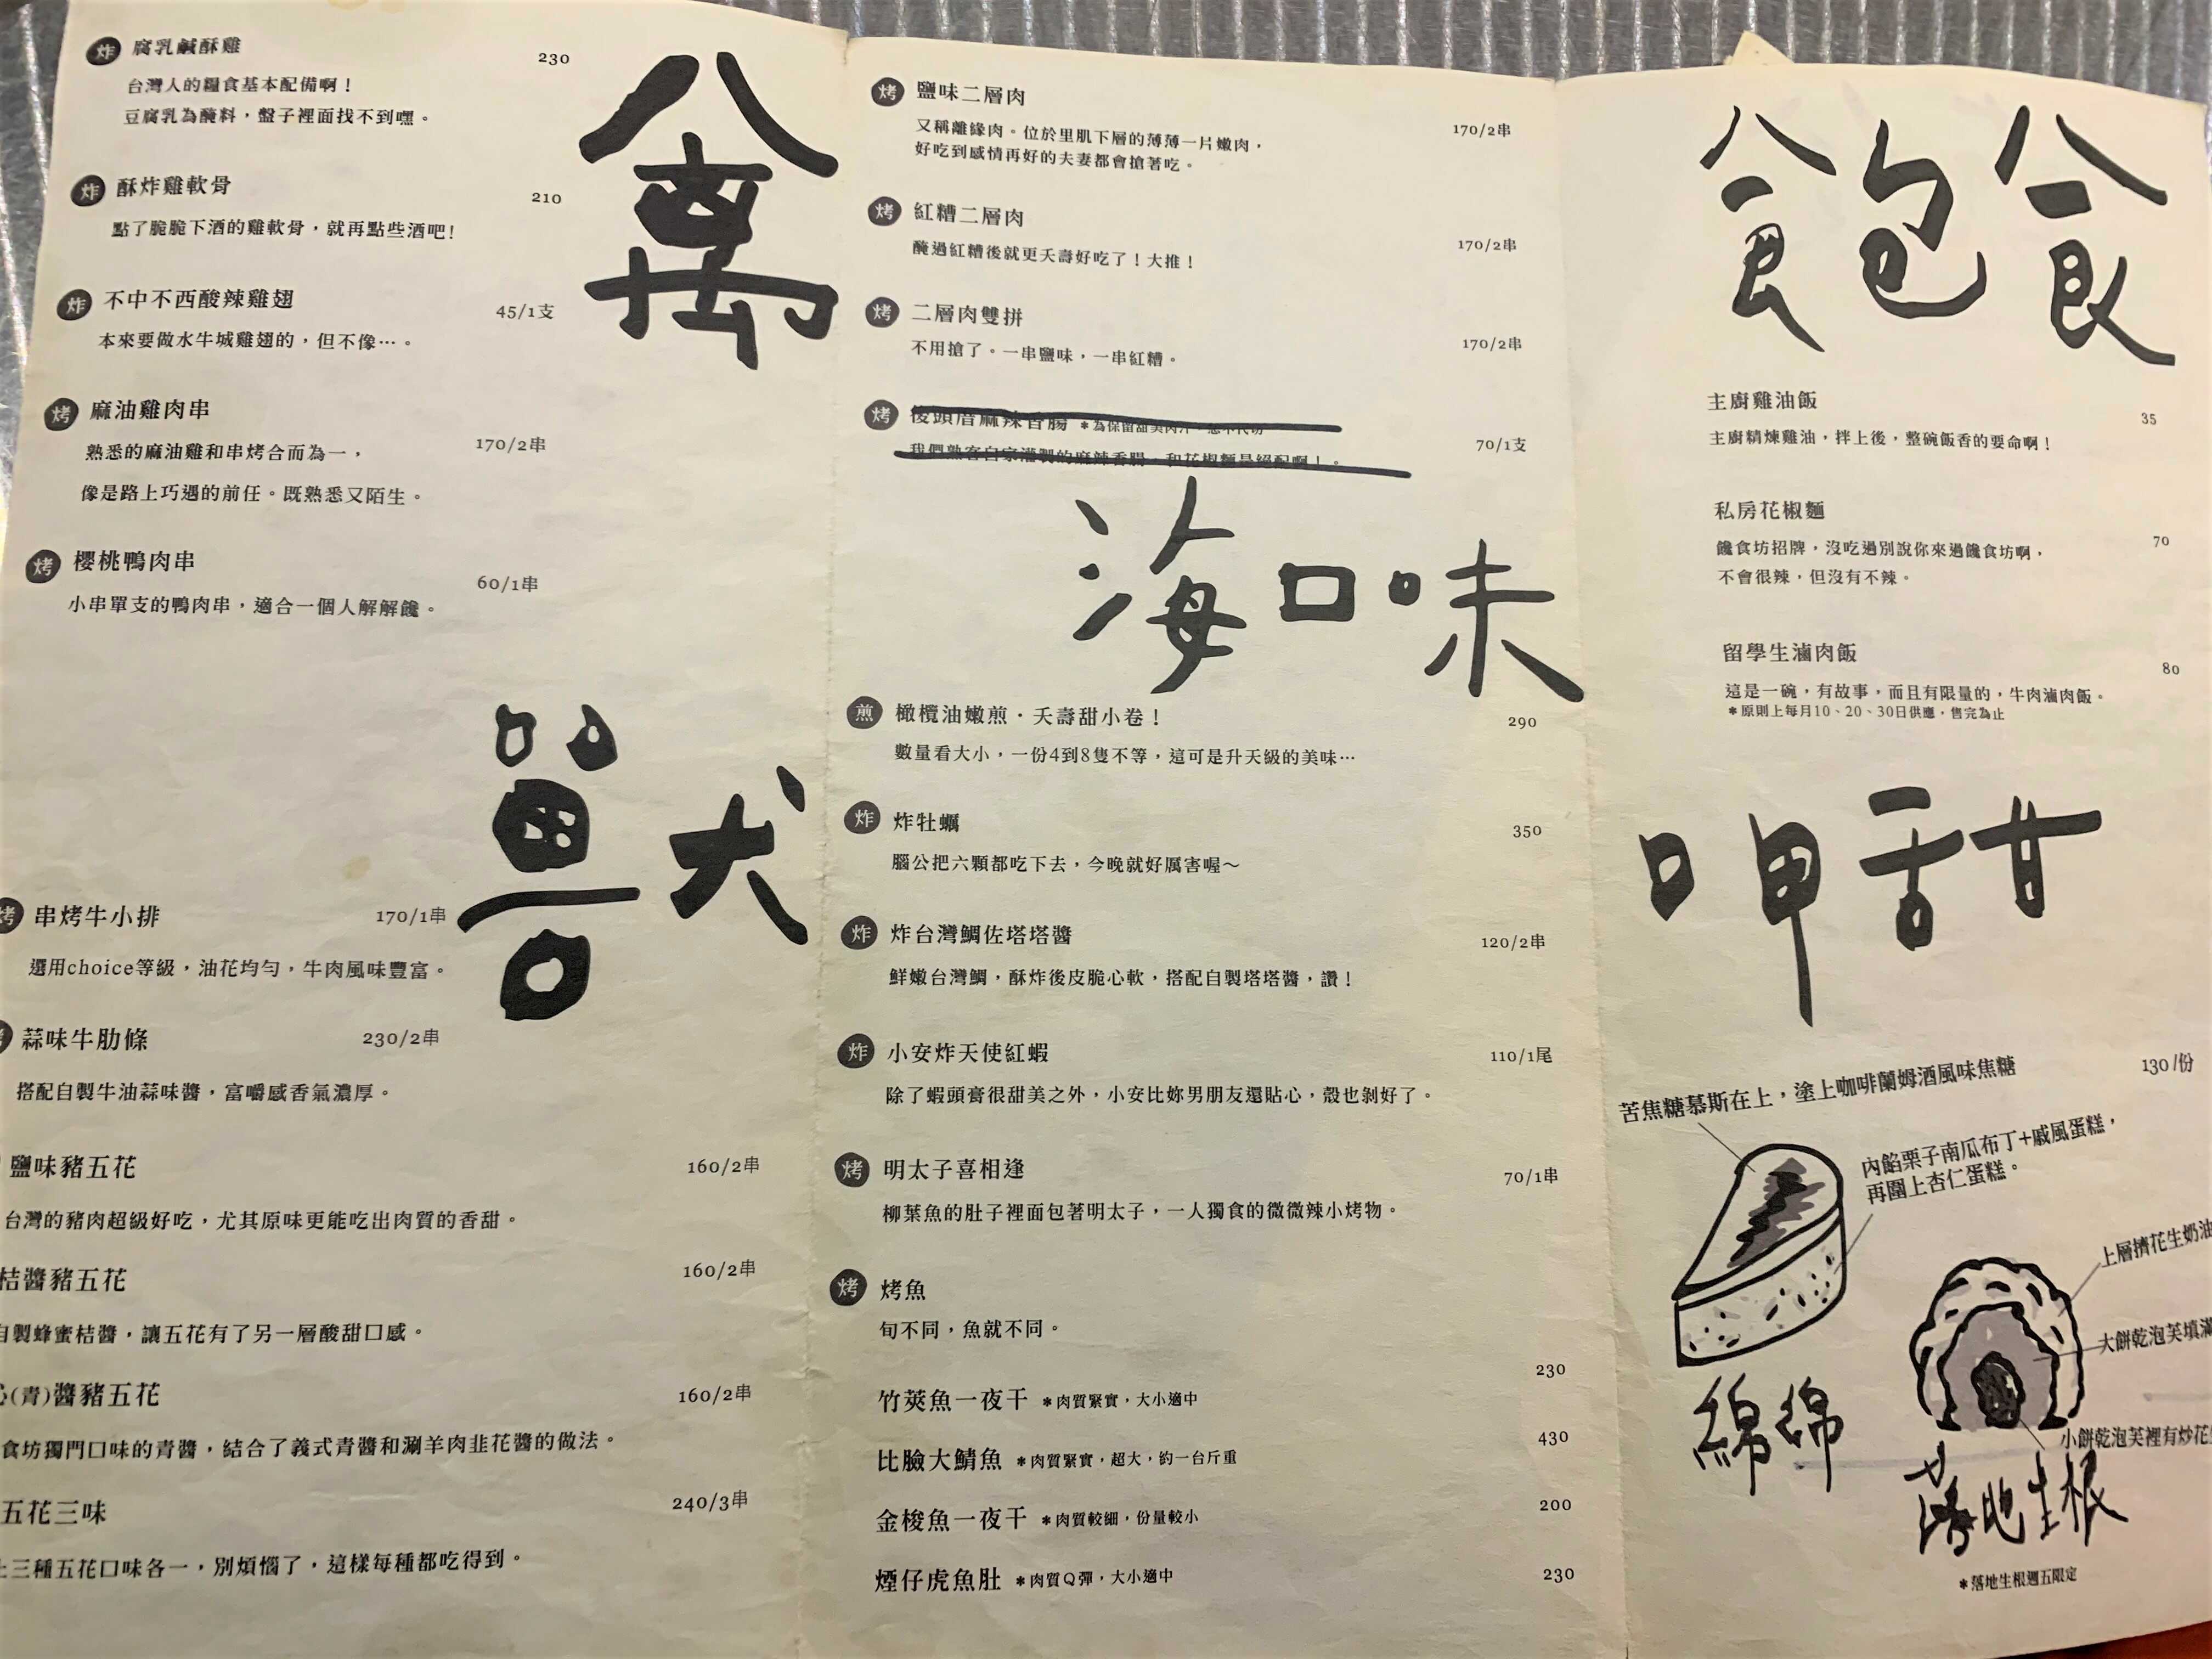 炸 腐乳鹹酥雞 230
台灣人的糧食基本配備啊！
豆腐乳為醃料，盤子裡面找不到嘿。
炸 酥炸雞軟骨 210
點了脆脆下酒的雞軟骨，就再點些酒吧！
炸 不中不西酸辣雞翅 45/1支
本來要做水牛城雞翅的，但不像…。
烤 麻油雞肉串 170/2串
熟悉的麻油雞和串烤合而為一，
像是路上巧遇的前任。既熟悉又陌生。
烤 櫻桃鴨肉串 60/1串
小串單支的鴨肉串，適合一個人解解饞。
禽
獸
烤 串烤牛小排 170/1串
選用choice等級，油花均勻，牛肉風味豐富。
蒜味牛肋條 230/2串
搭配自製牛油蒜味醬，富嚼感香氣濃厚。
鹽味豬五花 160/2串
台灣的豬肉超級好吃，尤其原味更能吃出肉質的香甜。
桔醬豬五花 160/2串
自製蜂蜜桔醬，讓五花有了另一層酸甜口感。
(青)醬豬五花 160/2串
食坊獨門口味的青醬，結合了義式青醬和涮羊肉韭花醬的做法。
五花三味 240/3串
上三種五花口味各一，別煩惱了，這樣每種都吃得到。
烤 鹽味二層肉 170/2串
又稱離緣肉。位於里肌下層的薄薄一片嫩肉，
好吃到感情再好的夫妻都會搶著吃。
烤 紅糟二層肉 170/2串
醃過紅糟後就更夭壽好吃了！大推！
烤 二層肉雙拼 170/2串
不用搶了。一串鹽味，一串紅糟。
烤 後頭厝麻辣香腸 *為保留甜美肉汁，恕不代切 70/1支
我們熟客自家灌製的麻辣香腸，和花椒麵是絕配啊！。
海口味
煎 橄欖油嫩煎．夭壽甜小卷！ 290
數量看大小，一份4到8隻不等，這可是升天級的美味…
炸 炸牡蠣 350
腦公把六顆都吃下去，今晚就好厲害喔～
炸 炸台灣鯛佐塔塔醬 120/2串
鮮嫩台灣鯛，酥炸後皮脆心軟，搭配自製塔塔醬，讚！
炸 小安炸天使紅蝦 110/1尾
除了蝦頭膏很甜美之外，小安比妳男朋友還貼心，殼也剝好了。
烤 明太子喜相逢 70/1串
柳葉魚的肚子裡面包著明太子，一人獨食的微微辣小烤物。
烤 烤魚
旬不同，魚就不同。
竹莢魚一夜干 *肉質緊實，大小適中 230
比臉大鯖魚 *肉質緊實，超大，約一台斤重 430
金梭魚一夜干 *肉質較細，份量較小 200
煙仔虎魚肚 *肉質Q彈，大小適中 230
食飽食
主廚雞油飯 35
主廚精煉雞油，拌上後，整碗飯香的要命啊！
私房花椒麵 70
饞食坊招牌，沒吃過別說你來過饞食坊啊，
不會很辣，但沒有不辣。
留學生滷肉飯 80
這是一碗，有故事，而且有限量的，牛肉滷肉飯。
*原則上每月10、20、30日供應，售完為止
呷甜
130/份
苦焦糖慕斯在上，塗上咖啡蘭姆酒風味焦糖
內餡栗子南瓜布丁+戚風蛋糕，
再圍上杏仁蛋糕。
綿綿
上層擠花生奶油
大餅乾泡芙填滿
小餅乾泡芙裡有炒花
落地生根
*落地生根週五限定